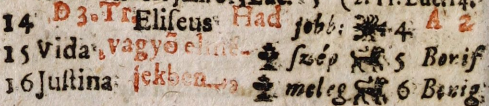 14 D 3. Tr. Eliſeus Had jobb: 4 A 2
15 Vida vagyő elmé- ſzép 5 Boniſ
16 Juſtina jekben meleg 6 Benig